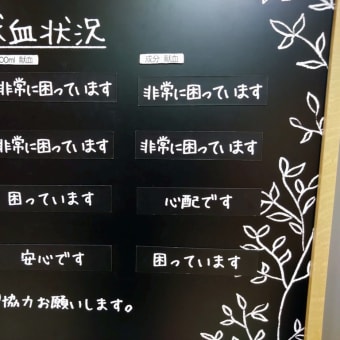 血状況
00ml 献血 成分 献血
非常に困っています 非常に困っています
非常に困っています 非常に困っています
困っています 心配です
安心です 困っています
協力お願いします。